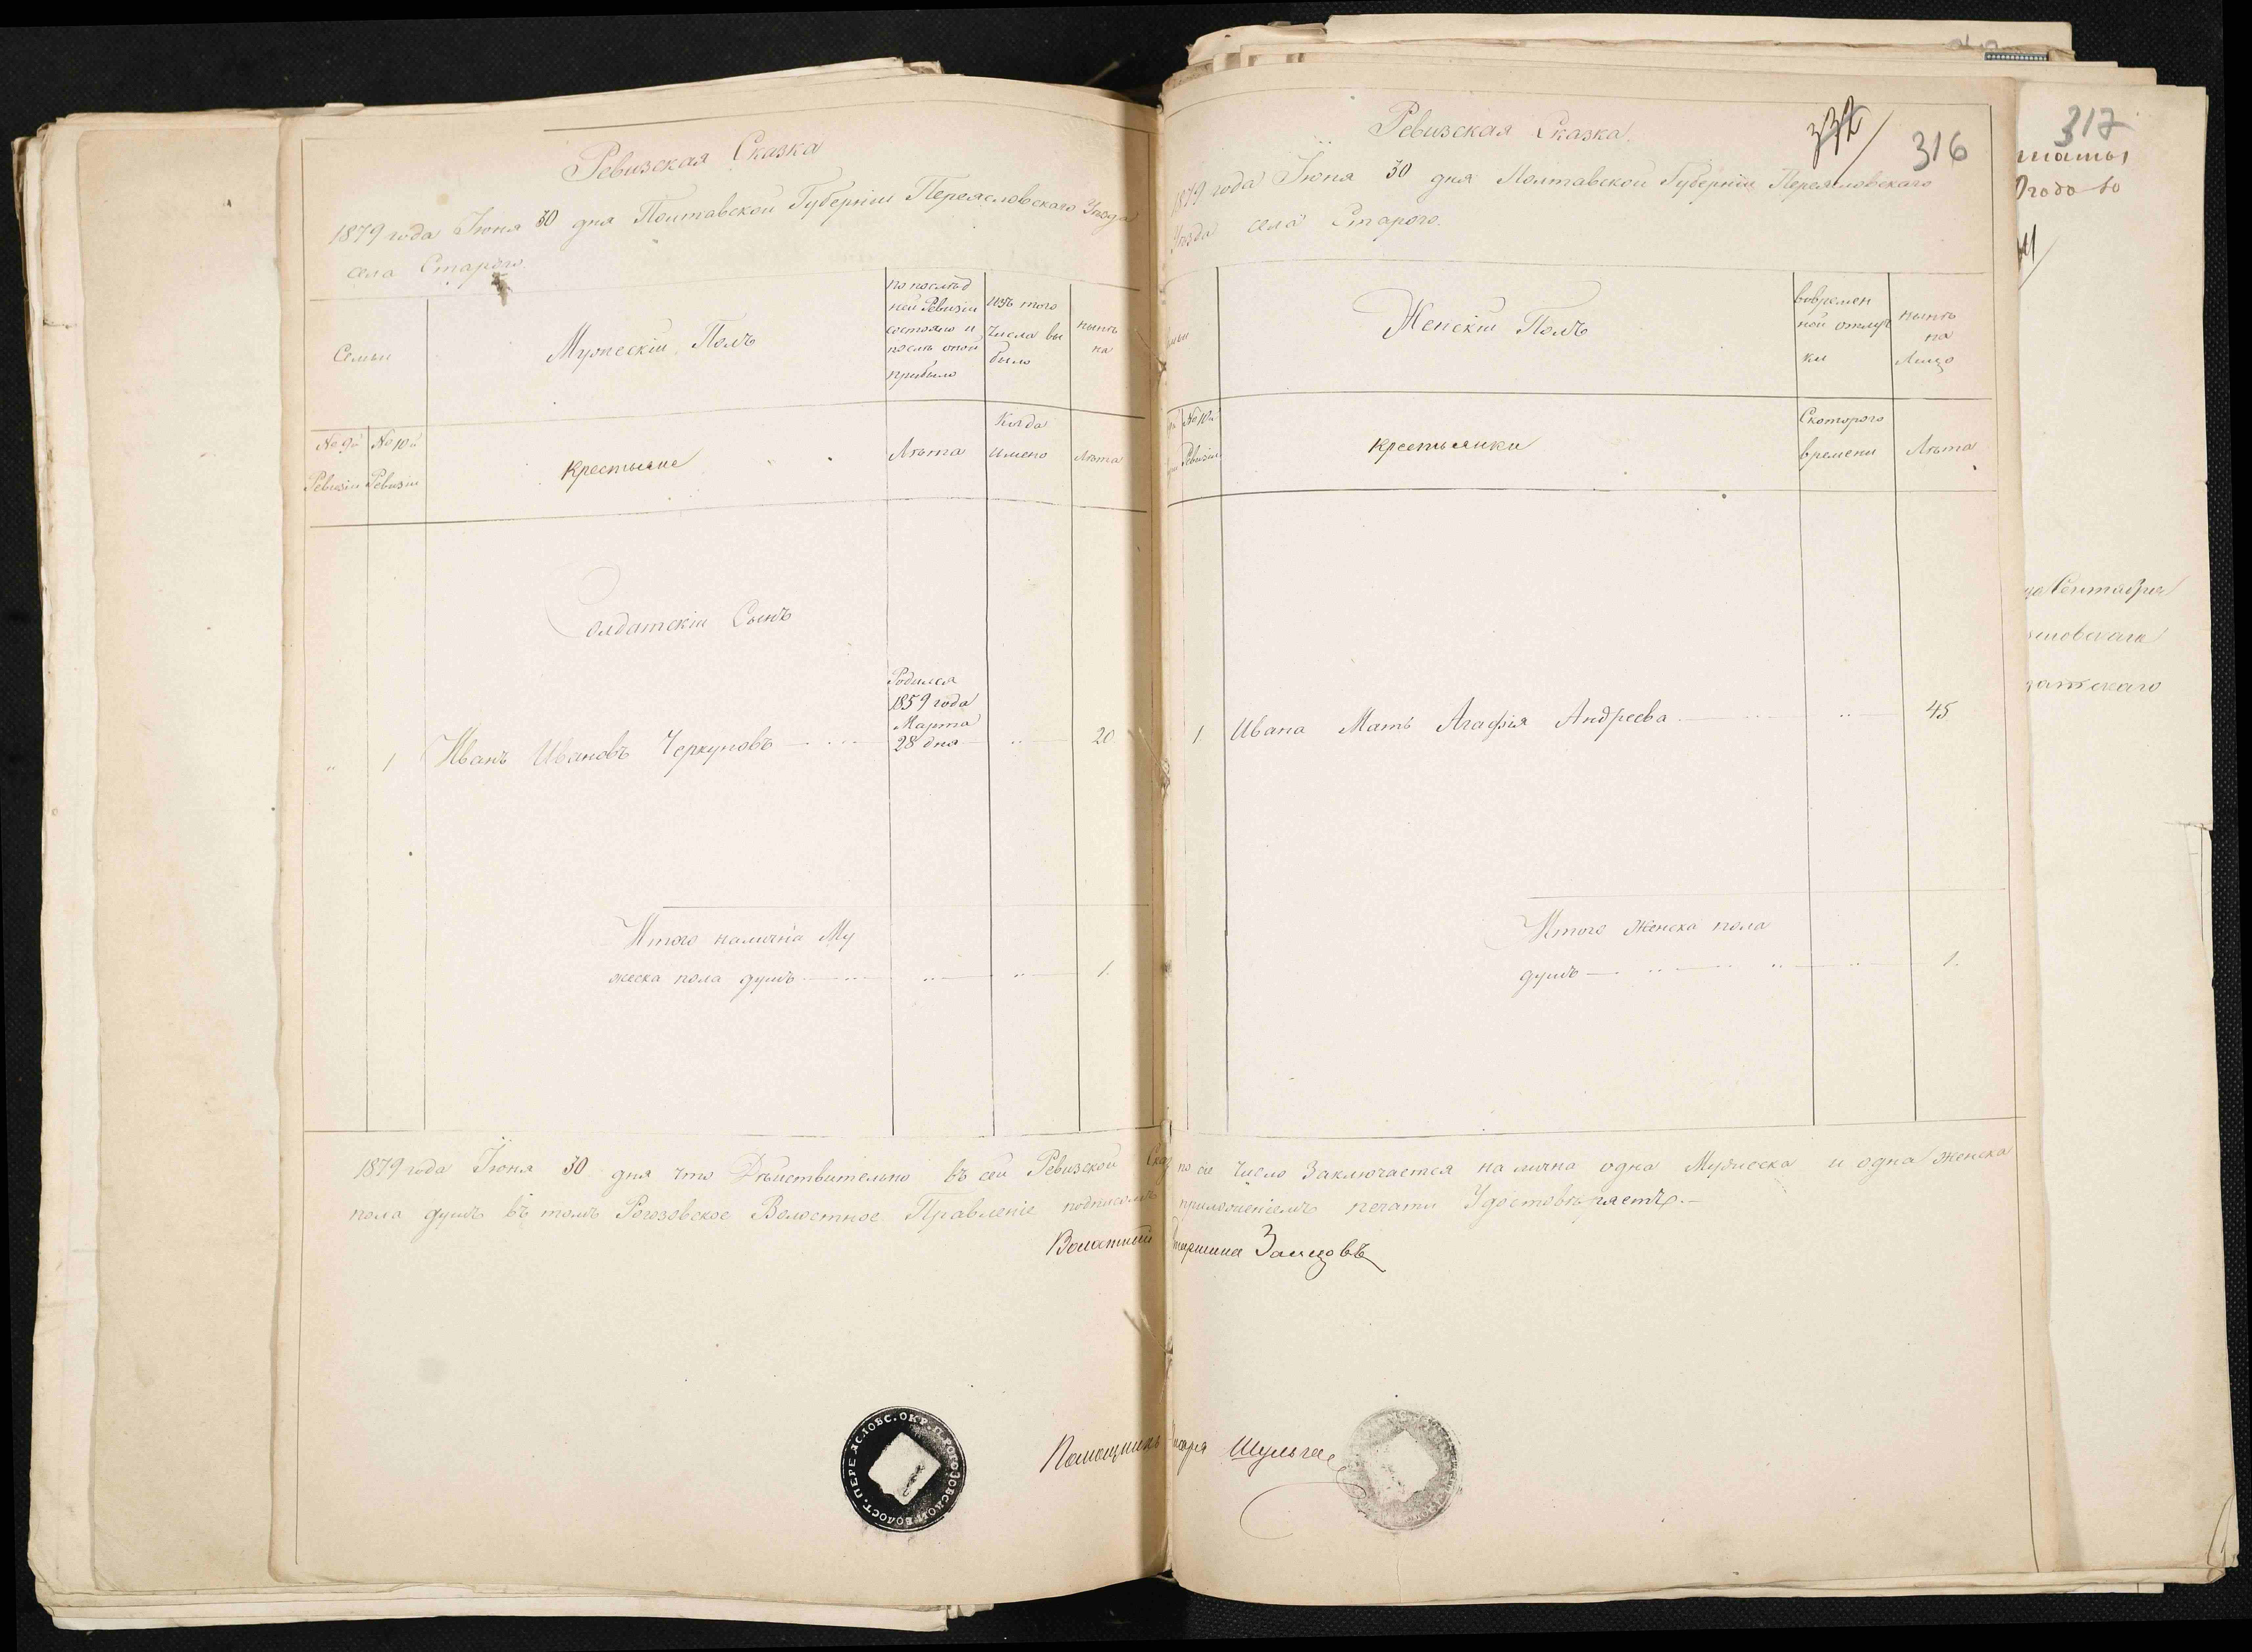 Ревизская Сказка
1879 года Іюня 30 дня Полтавской Губерніи Переясловскаго Уѣзда
села Старого
Семьи
Мужескій Полъ
по послѣд
ней Ревизіи
состояло и
послѣ оной
прибыло
изъ того
числа вы
было
нынѣ
на
№ 9й
Ревизіи
№ 10й
Ревизіи
крестьяне
Лѣта
Когда
имено
Лѣта
Солдатскій Сынъ
Родился
1859 года
Марта
28 дня
1 Иванъ Ивановъ Черкуновъ
20
Итого налична Му
жеска пола душъ
1.
332
316
Ревизская Сказка.
1879 года Іюня 30 дня Полтавской Губерніи Переясловскаго
Уѣзда села Старого.
Женскій Полъ
вовремен
ной отлуч
ки
нынѣ
на
Лицо
№ 10й
Ревизіи
крестьянки
Скоторого
времени
Лѣта
1 Ивана Мать Агафія Андреева
45
Итого Женска пола
душъ
1.
1879 года Іюня 30 дня что Дѣйствительно въ сей Ревизской Сказ по сіе число Заключается на лична одна Мужеска и одна женска
пола душъ въ томъ Рогозовское Волостное Правленіе подписомъ приложеніемъ печати Удостовѣряетъ.—
Волостный Старшина Заицовъ
Помощникъ Писаря Шульга
ПЕРЕЯСЛОВС. ОКР. РОГОЗОВСКОМ ВОЛОСТ.
317
Сентября